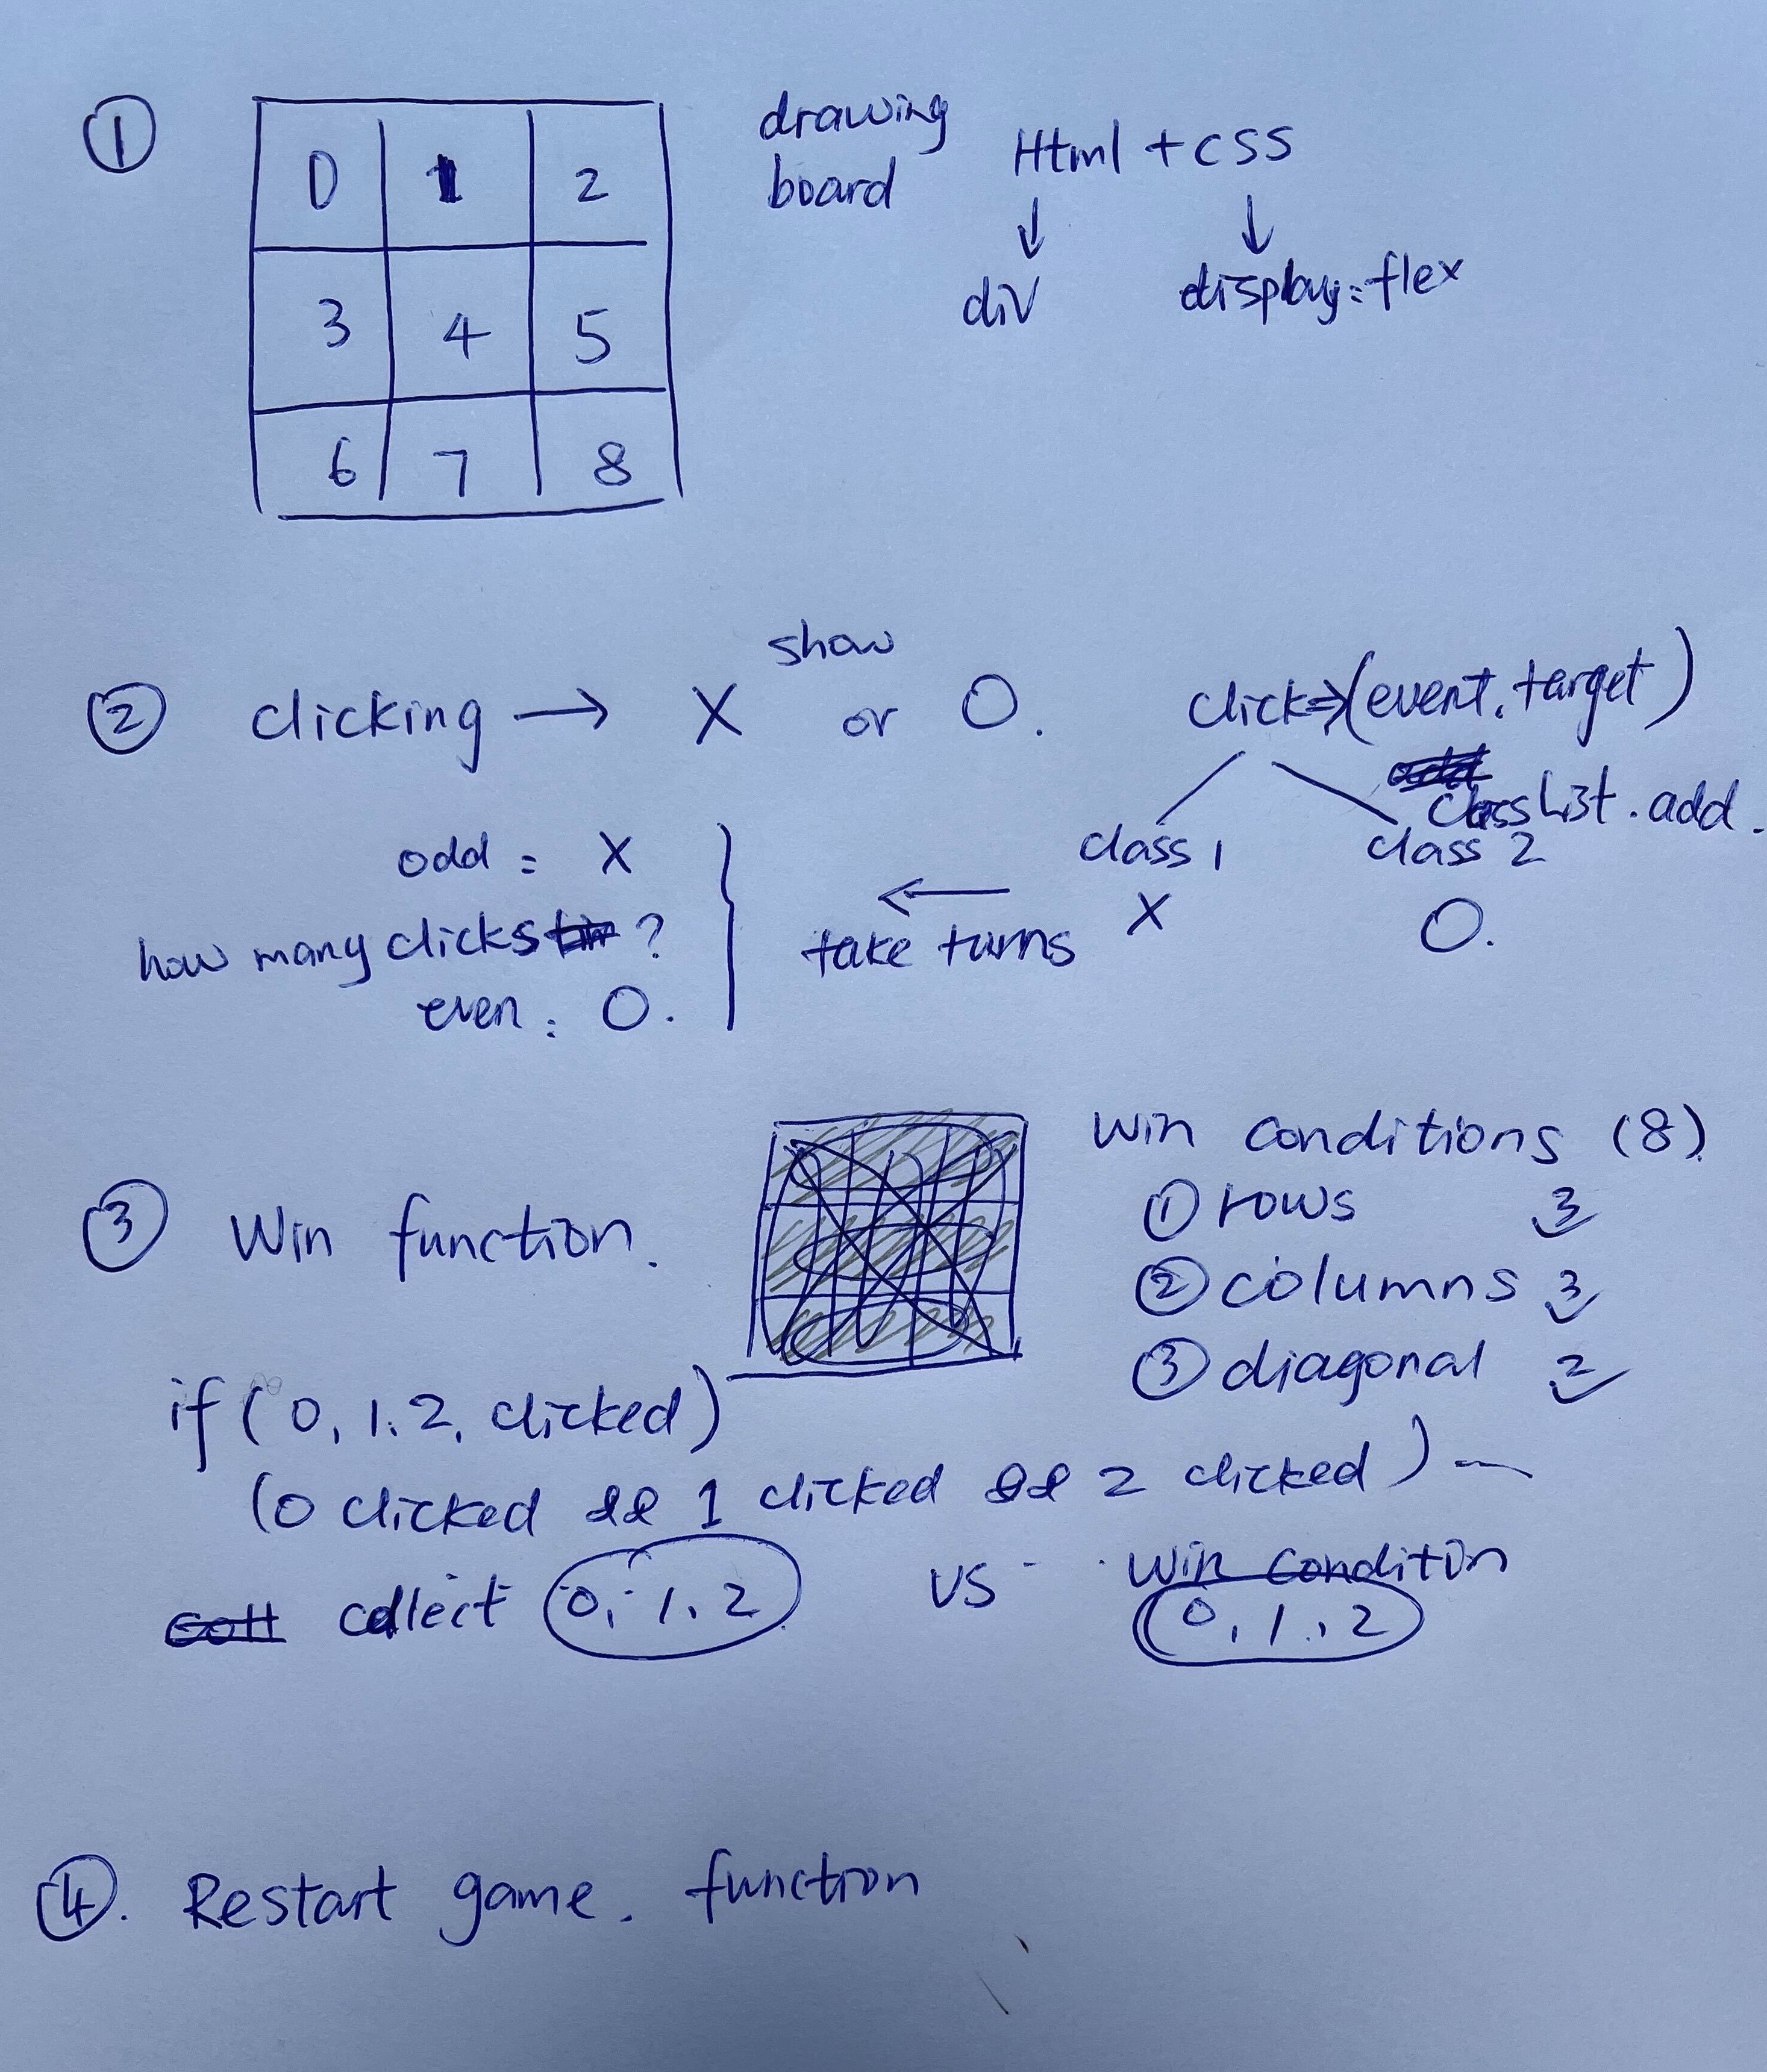 ①
0 1 2
3 4 5
6 7 8
drawing
board
Html + css
↓ ↓
div display: flex
② clicking → X show or O. click⇒(event.target)
classList.add.
class 1 class 2
X O.
← take turns
odd : X
how many clicks ?
even : O.
③ Win function.
win conditions (8)
① rows 3
② columns 3
③ diagonal 2
if ( 0, 1. 2, clicked)
(0 clicked && 1 clicked && 2 clicked )
collect 0, 1, 2 VS win condition
0, 1, 2
④. Restart game. function